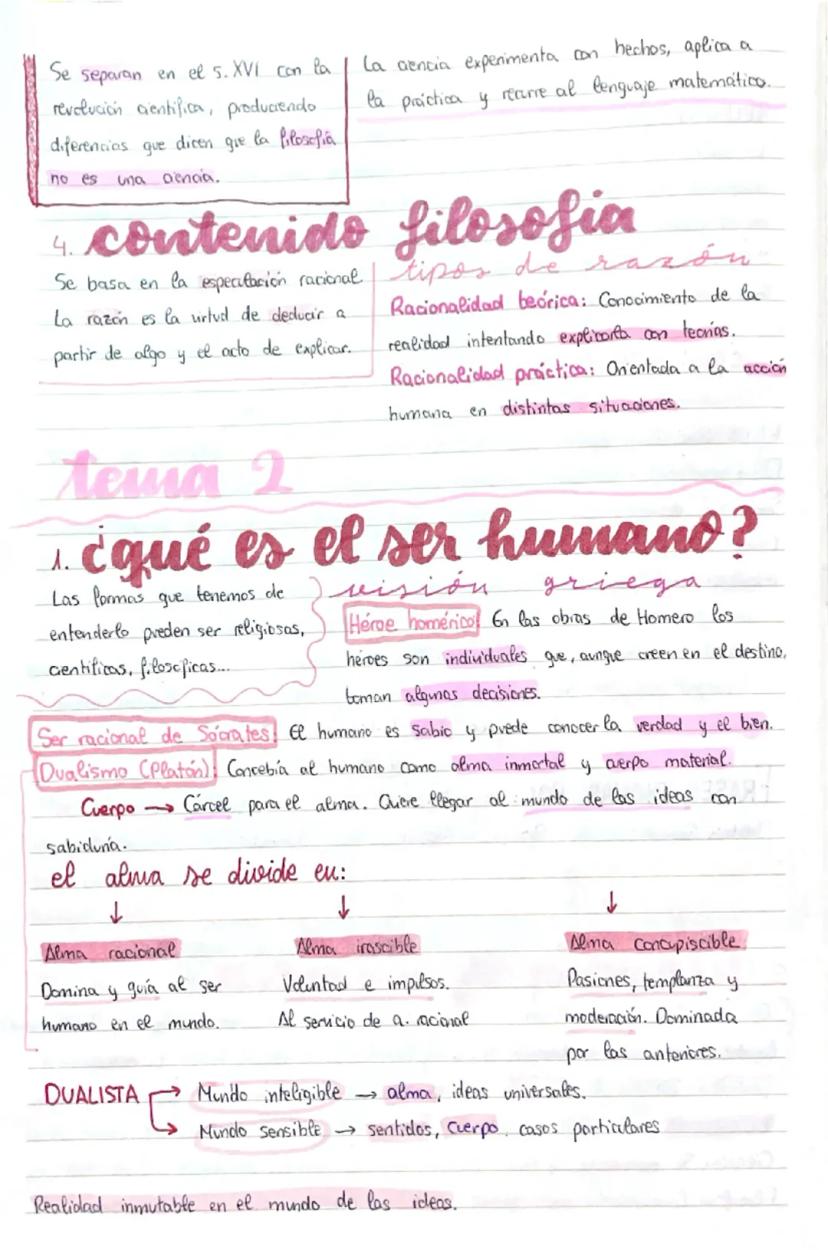 Se separan en el s. XVI con la
revolución científica, produciendo
diferencias que dicen que la filosofía
no es una ciencia.
La ciencia experimenta con hechos, aplica a
la práctica y recurre al lenguaje matemático.
4. contenido filosofia
Se basa en la especulación racional.
La razón es la virtud de deducir a
partir de algo y el acto de explicar.
tipos de razón
Racionalidad teórica: Conocimiento de la
realidad intentando explicarla con teorías.
Racionalidad práctica: Orientada a la acción
humana en distintas situaciones.
tema 2
1. ¿qué es el ser humano?
Las formas que tenemos de
entenderlo pueden ser religiosas,
científicas, filosóficas...
visión griega
Héroe homérico En las obras de Homero los
héroes son individuales que, aunque creen en el destino,
toman algunas decisiones.
Ser racional de Sócrates El humano es sabio y puede conocer la verdad y el bien.
Dualismo (Platón) Concebía al humano como alma inmortal y cuerpo material.
Cuerpo → Cárcel para el alma. Quiere llegar al mundo de las ideas con
sabiduría.
el alma se divide en:
↓ ↓ ↓
Alma racional
Domina y guía al ser
humano en el mundo.
Alma irascible
Voluntad e impulsos.
Al servicio de a. racional
Alma concupiscible
Pasiones, templanza y
moderación. Dominada
por las anteriores.
DUALISTA → Mundo inteligible → alma, ideas universales.
→ Mundo sensible → sentidos, cuerpo, casos particulares
Realidad inmutable en el mundo de las ideas.